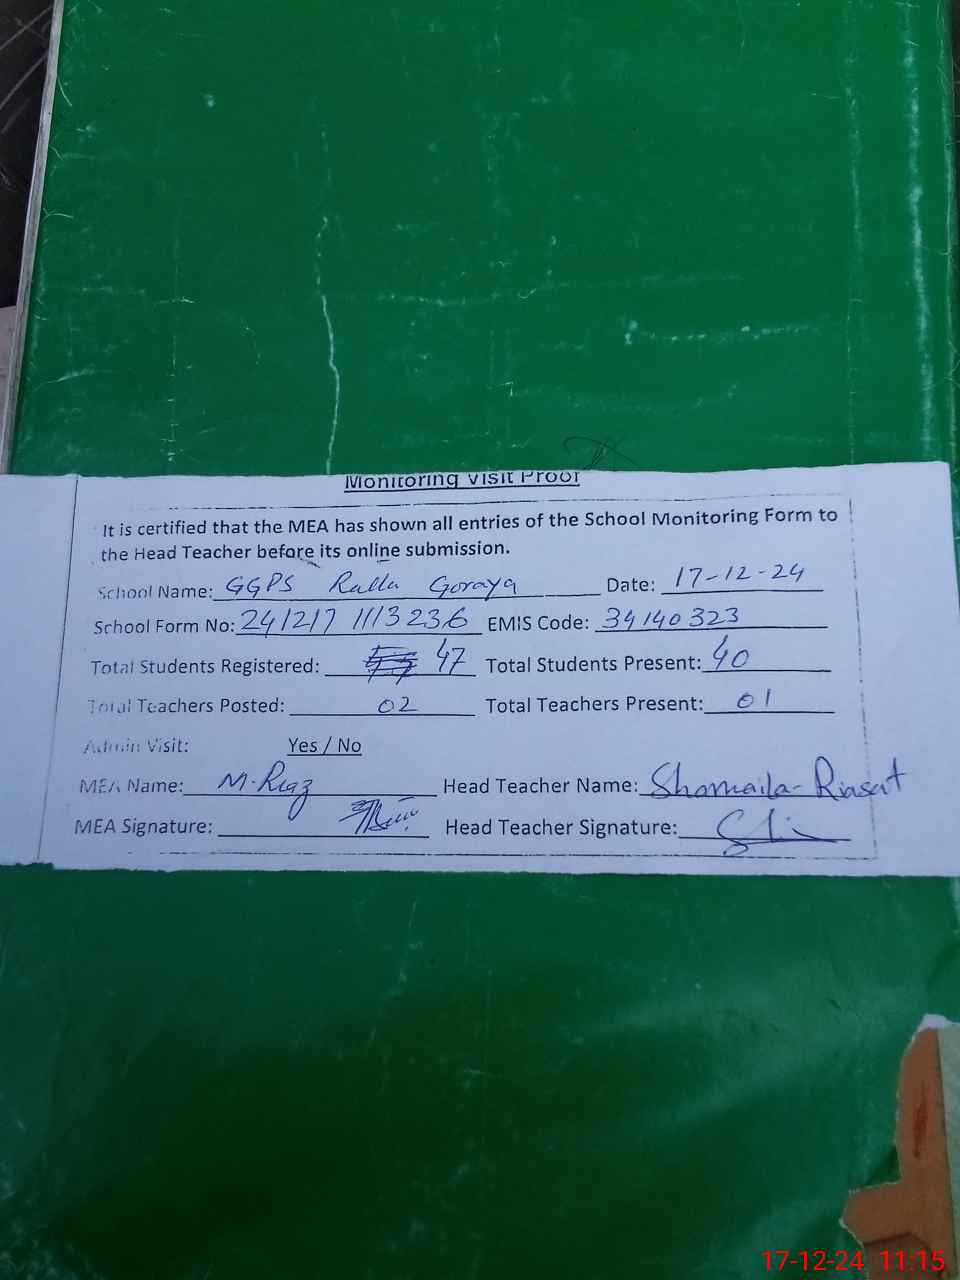 Monitoring Visit Proof
It is certified that the MEA has shown all entries of the School Monitoring Form to
the Head Teacher before its online submission.
School Name: GGPS Ralla Goraya Date: 17-12-24
School Form No: 241217 1113236 EMIS Code: 34140323
Total Students Registered: 47 Total Students Present: 40
Total Teachers Posted: 02 Total Teachers Present: 01
Admin Visit: Yes / No
MEA Name: M. Riaz Head Teacher Name: Shamaila Riasat
MEA Signature: Head Teacher Signature:
17-12-24 11:15